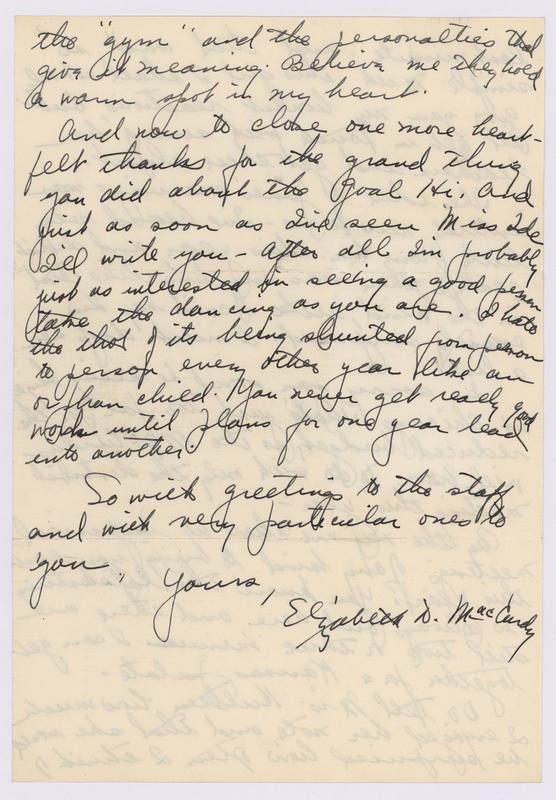 the "gym" and the personalties that
give it meaning. Believe me they hold
a warm spot in my heart.
And now to close one more heart-
felt thanks for the grand thing
you did about the Goal Hi. And
just as soon as I've seen Miss Ide
I'll write you - After all I'm probably
just as interested in seeing a good person
take the dancing as you are. I hate
the thot of its being shunted from person
to person every other year like an
orphan child. You never get really good
work until plans for one year lead
into another.
So with greetings to the staff
and with very particular ones to
you,
Yours,
Elizabeth D. MacCurdy